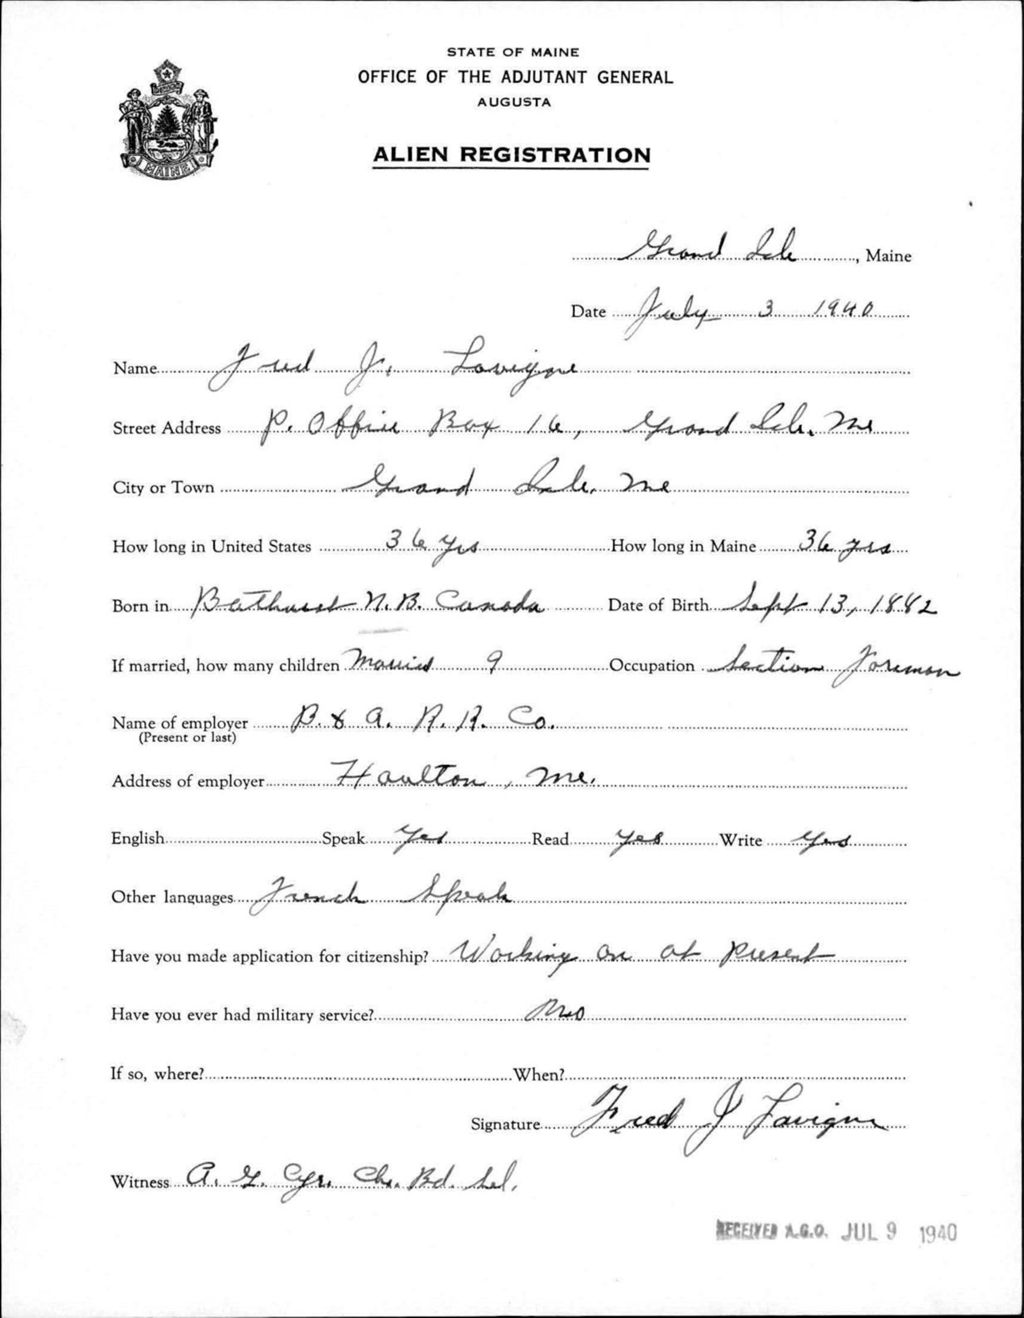 STATE OF MAINE
OFFICE OF THE ADJUTANT GENERAL
AUGUSTA
ALIEN REGISTRATION
MAINE
Grand Isle, Maine
Date July 3 1940
Name Fred J. Lavigne
Street Address P. Office Box 16, Grand Isle, Me
City or Town Grand Isle, Me
How long in United States 36 yrs How long in Maine 36 yrs
Born in Bathurst N.B. Canada Date of Birth Sept 13, 1882
If married, how many children Married 9 Occupation Section Foreman
Name of employer B. & A. R. R. Co.
(Present or last)
Address of employer Houlton, Me.
English Speak Yes Read Yes Write Yes
Other languages French Speak
Have you made application for citizenship? Working on at present
Have you ever had military service? No
If so, where? When?
Signature Fred J Lavigne
Witness A. G. Cyr. Ch. Bd. Sel.
RECEIVED A.G.O. JUL 9 1940